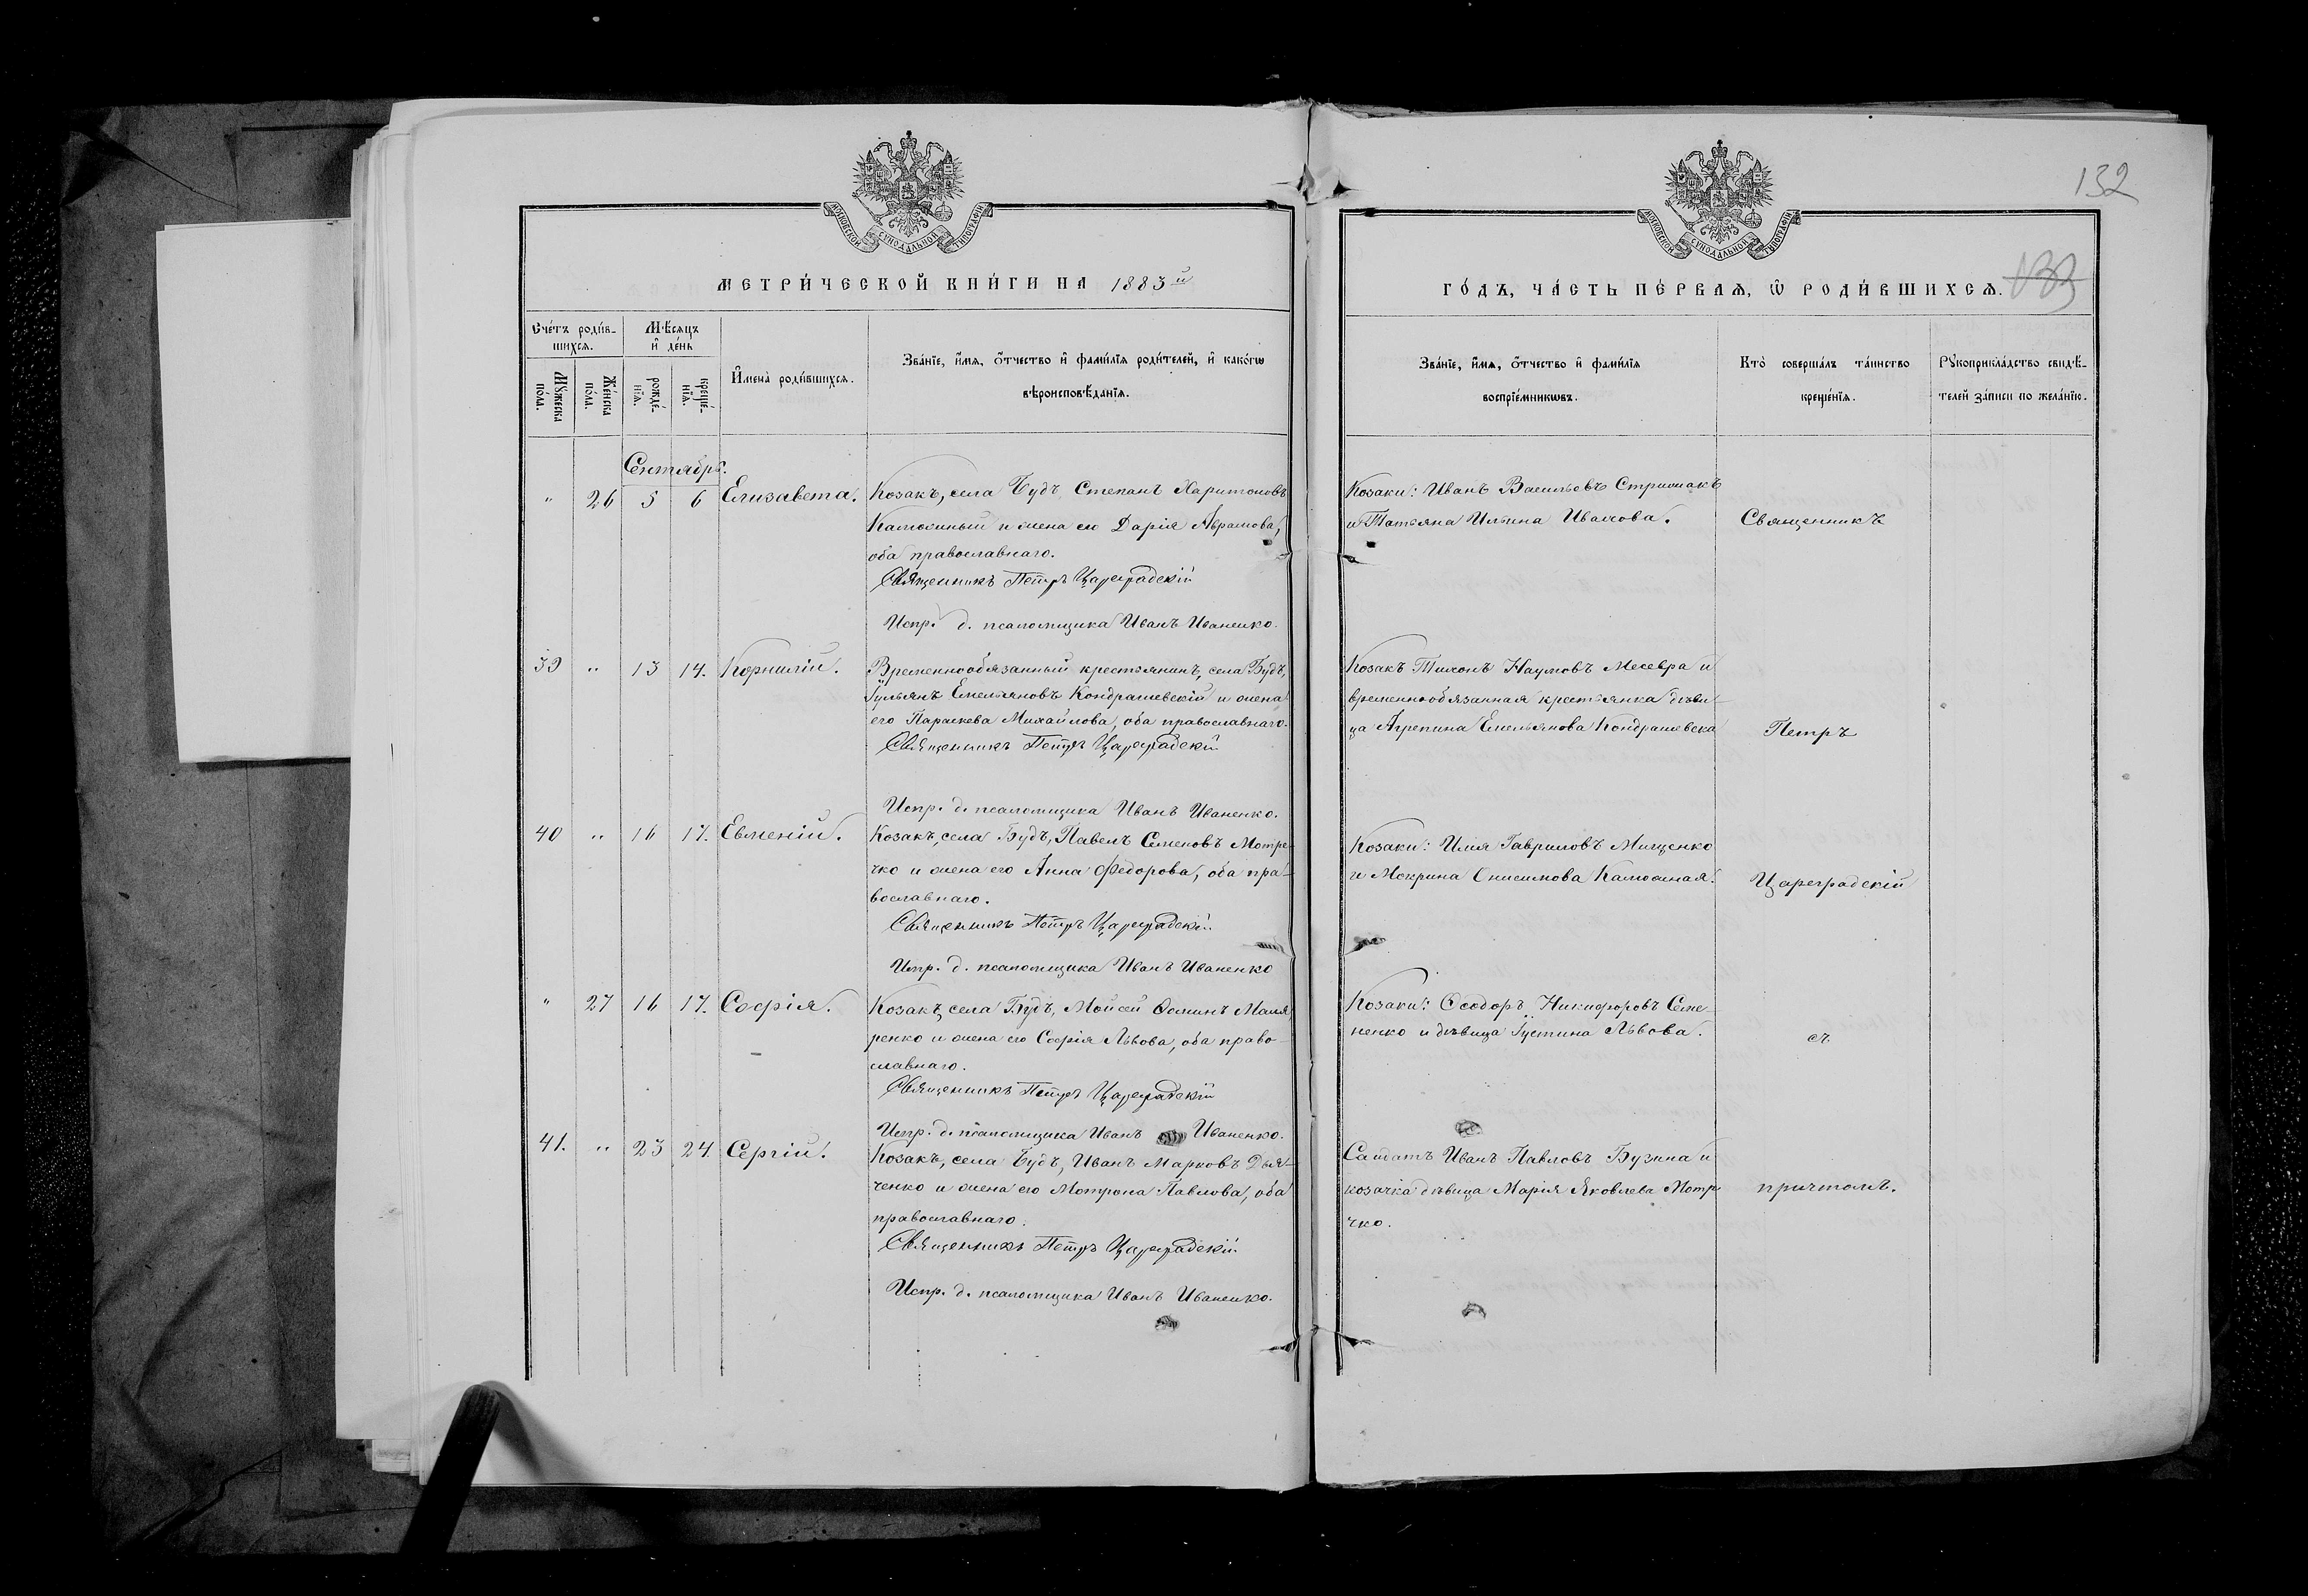 132
133
МОСКОВСКОЙ СУНОДАЛЬНОЙ ТИПОГРАФІИ
МОСКОВСКОЙ СУНОДАЛЬНОЙ ТИПОГРАФІИ
МЕТРИ́ЧЕСКОЙ КНИ́ГИ НА 1883й
ГО́ДЪ, ЧА́СТЬ ПЕ́РВАѦ, Ѡ РОДИ́ВШИХСѦ.
Счетъ роди́в-
шихсѧ.
Мѣсѧцъ
и де́нь
Мꙋжеска
по́ла.
Же́нска
по́ла.
рожде́-
нїѧ.
креще́-
нїѧ.
И҆мена̀ роди́вшихсѧ.
Зва́нїе, и҆́мѧ, ѻ҆́тчество и҆ фами́лїѧ роди́телей, и҆ како́гѡ
вѣроисповѣ́данїѧ.
Зва́нїе, и҆́мѧ, ѻ҆́тчество и҆ фами́лїѧ
воспрїе́мникѡвъ.
Кто̀ соверша́лъ та́инство
креще́нїѧ.
Рꙋкоприкла́дство свидѣ́-
телей за́писи по жела́нїю.
Сентябрь.
" 26 5 6 Елизавета. Козакъ, села Будъ, Степанъ Харитоновъ
Калюжный и жена его Дарія Абрамова,
оба православнаго.
Священникъ Петръ Цареградскій
Испр. д. псаломщика Иванъ Иваненко.
Козаки: Иванъ Васильевъ Стрижакъ
и Татьяна Ильина Ивахова.
Священникъ
39 " 13 14. Корнилій. Временнообязанный крестьянинъ, села Будъ,
Іульянъ Емельяновъ Кондрашевскій и жена
его Параскева Михайлова, оба православнаго.
Священникъ Петръ Цареградскій
Испр. д. псаломщика Иванъ Иваненко.
Козакъ Тихонъ Наумовъ и
временнообязанная крестьянка дѣви-
ца Агрепина Емельянова Кондрашевска
Петръ
40 " 16 17. Евменій. Козакъ, села Будъ, Павелъ Семеновъ Мотре-
чко и жена его Анна Федорова, оба пра-
вославнаго.
Священникъ Петръ Цареградскій
Испр. д. псаломщика Иванъ Иваненко
Козаки: Илія Гавриловъ Мищенко
и Мокрина Онисимова Калюжная.
Цареградскій
" 27 16 17. Софія. Козакъ, села Будъ, Мойсей Ѳоминъ Маля-
ренко и жена его Софія Львова, оба право-
славнаго.
Священникъ Петръ Цареградскій
Испр. д. псаломщика Иванъ Иваненко.
Козаки: Ѳеодоръ Никифоровъ Семе-
ненко и дѣвица Іустина Львова.
съ
41. " 23 24. Сергій. Козакъ, села Будъ, Иванъ Марковъ Дья-
ченко и жена его Мотрона Павлова, оба
православнаго.
Священникъ Петръ Цареградскій
Испр. д. псаломщика Иванъ Иваненко.
Салдатъ Иванъ Павловъ Бузина и
козачка дѣвица Марія Яковлева Мотре-
чко.
причтомъ.